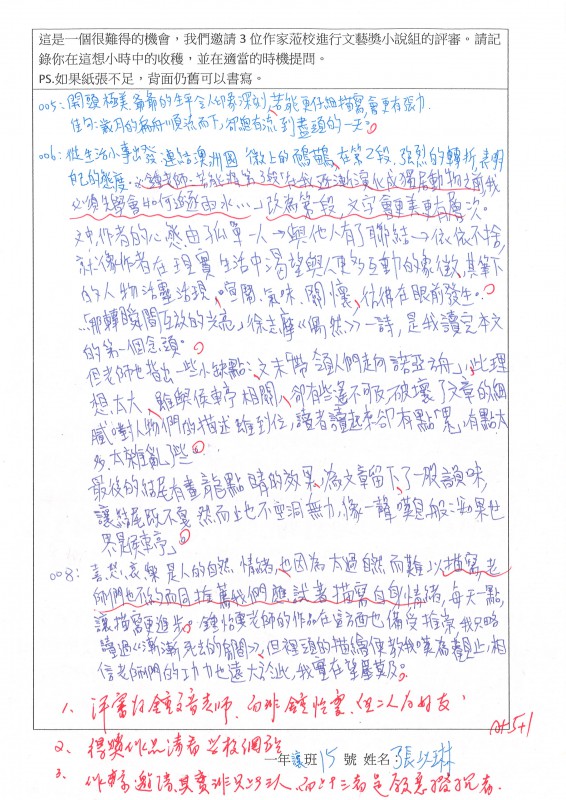 這是一個很難得的機會，我們邀請 3 位作家蒞校進行文藝獎小說組的評審。請記
錄你在這想小時中的收穫，並在適當的時機提問。
PS.如果紙張不足，背面仍舊可以書寫。
005：開頭極美，爺爺的生平令人印象深刻，若能更仔細描寫，會更有張力。
佳句：歲月的扁舟順流而下，卻總有流到盡頭的一天。
006：從生活小事出發，連結澳洲國徽上的鴯鶓，在第2段，強烈的轉折，表明
自己的態度。
必須先學會如何逆雨水……」改為首段，文字會更美更有層次。
文中，作者的心態由孤單一人→與他人有了聯結→依依不捨，
就像作者在現實生活中渴望與人更多互動的象徵，其筆下
的人物活靈活現，喧鬧、氣味、關懷，彷彿在眼前發生。
「那轉瞬間互放的光亮」徐志摩《偶然》一詩，是我讀完本文
的第一個念頭。
但老師也指出一些小缺點：文末「帶領人們走向諾亞方舟」，此理
想太大，雖與候車亭相關，卻有些遙不可及，破壞了文章的細
膩，對人物們的描述雖到位，讀者讀起來卻有點「累」，有點太
多，太雜亂了些。
最後的結尾有畫龍點睛的效果，為文章留下了一股韻味，
讓結尾既不戛然而止也不空洞無力，像一聲嘆息般：「如果世
界是候車亭」
008：喜、怒、哀、樂是人的自然情緒，也因為太過自然而難以描寫，老
師們也不約而同推薦我們應試著描寫自身情緒，每天一點，
讓描寫更進步。鍾怡雯老師的作品在這方面也備受推崇，我只略
讀過《漸漸死去的房間》，但裡頭的描繪便教我嘆為觀止，相
信老師們的功力也遠大於此，我實在望塵莫及。
1、評審為鍾文音老師，而非鍾怡雯，但二人為好友。
A+5+1
2、得獎作品請看學校網站
一年讓班15號 姓名 張以琳